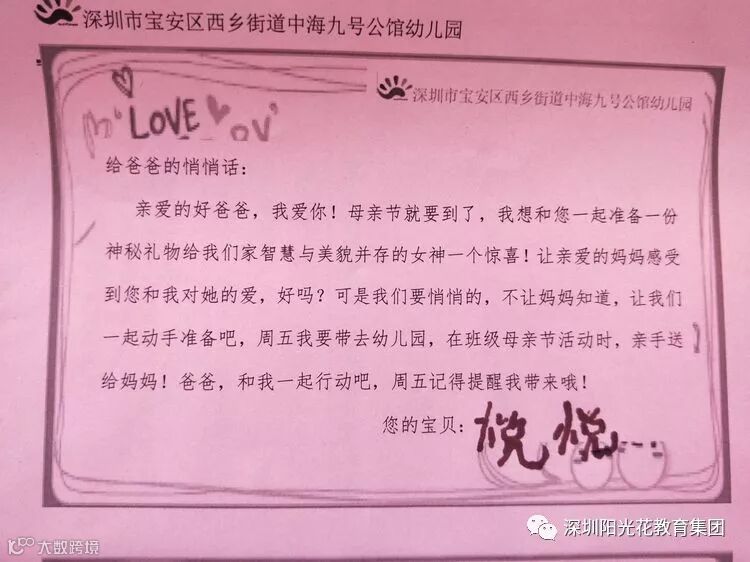 深圳市宝安区西乡街道中海九号公馆幼儿园
深圳市宝安区西乡街道中海九号公馆幼儿园
LOVE
给爸爸的悄悄话：
亲爱的好爸爸，我爱你！母亲节就要到了，我想和您一起准备一份
神秘礼物给我们家智慧与美貌并存的女神一个惊喜！让亲爱的妈妈感受
到您和我对她的爱，好吗？可是我们要悄悄的，不让妈妈知道，让我们
一起动手准备吧，周五我要带去幼儿园，在班级母亲节活动时，亲手送
给妈妈！爸爸，和我一起行动吧，周五记得提醒我带来哦！
您的宝贝：悦悦...
深圳阳光花教育集团
大数跨境